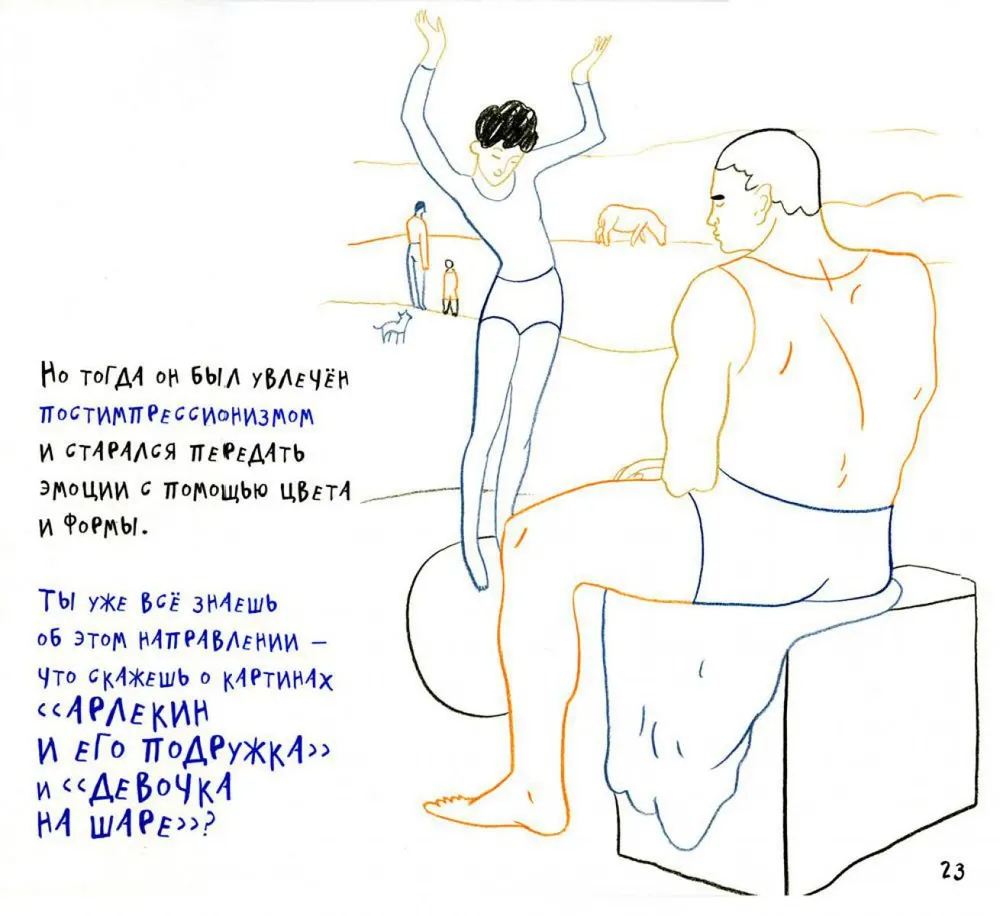 Но тогда он был увлечён
постимпрессионизмом
и старался передать
эмоции с помощью цвета
и формы.
Ты уже всё знаешь
об этом направлении –
что скажешь о картинах
«Арлекин
и его подружка»
и «Девочка
на шаре»?
23